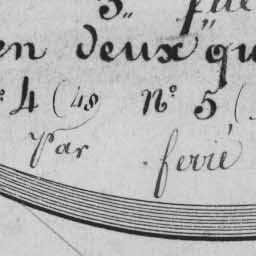 3,,
en deux qu
4 (48 N° 5 (
Par ferré